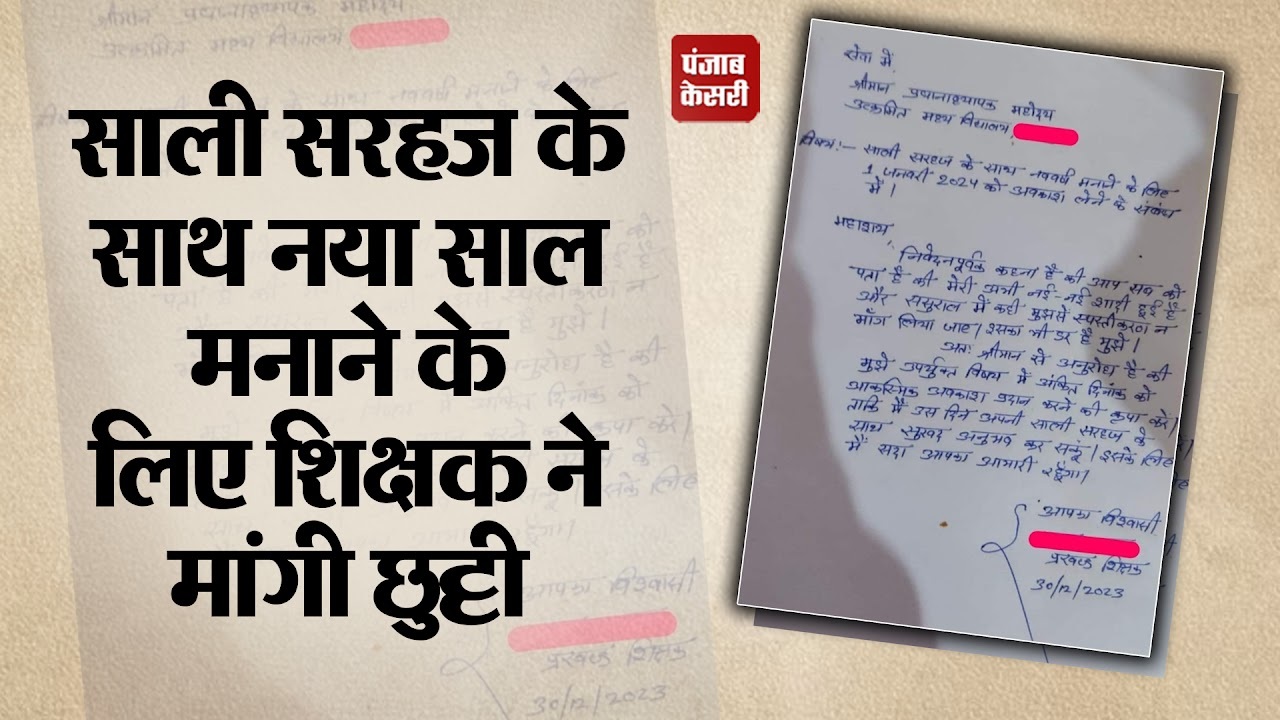 साली सरहज के
साथ नया साल
मनाने के
लिए शिक्षक ने
मांगी छुट्टी
पंजाब
केसरी
सेवा में,
श्रीमान प्रधानाध्यापक महोदय
उत्क्रमित मध्य विद्यालय,
विषय:- साली सरहज के साथ नववर्ष मनाने के लिए
1 जनवरी 2024 को अवकाश लेने के संबंध
में।
महाशय,
निवेदनपूर्वक कहना है की आप सब को
पता है की मेरी अभी नई-नई शादी हुई है
और ससुराल में कही मुझसे स्पस्तीकरण न
माँग लिया जाए। इसका भी डर है मुझे।
अतः श्रीमान से अनुरोध है की
मुझे उपर्युक्त विषय में अंकित दिनांक को
आकस्मिक अवकाश प्रदान करने की कृपा करें।
ताकि मैं उस दिन अपनी साली सरहज के
साथ सुखद अनुभव कर सकूं। इसके लिए
मैं सदा आपका आभारी रहूँगा।
आपका विश्वासी
प्रखण्ड शिक्षक
30/12/2023